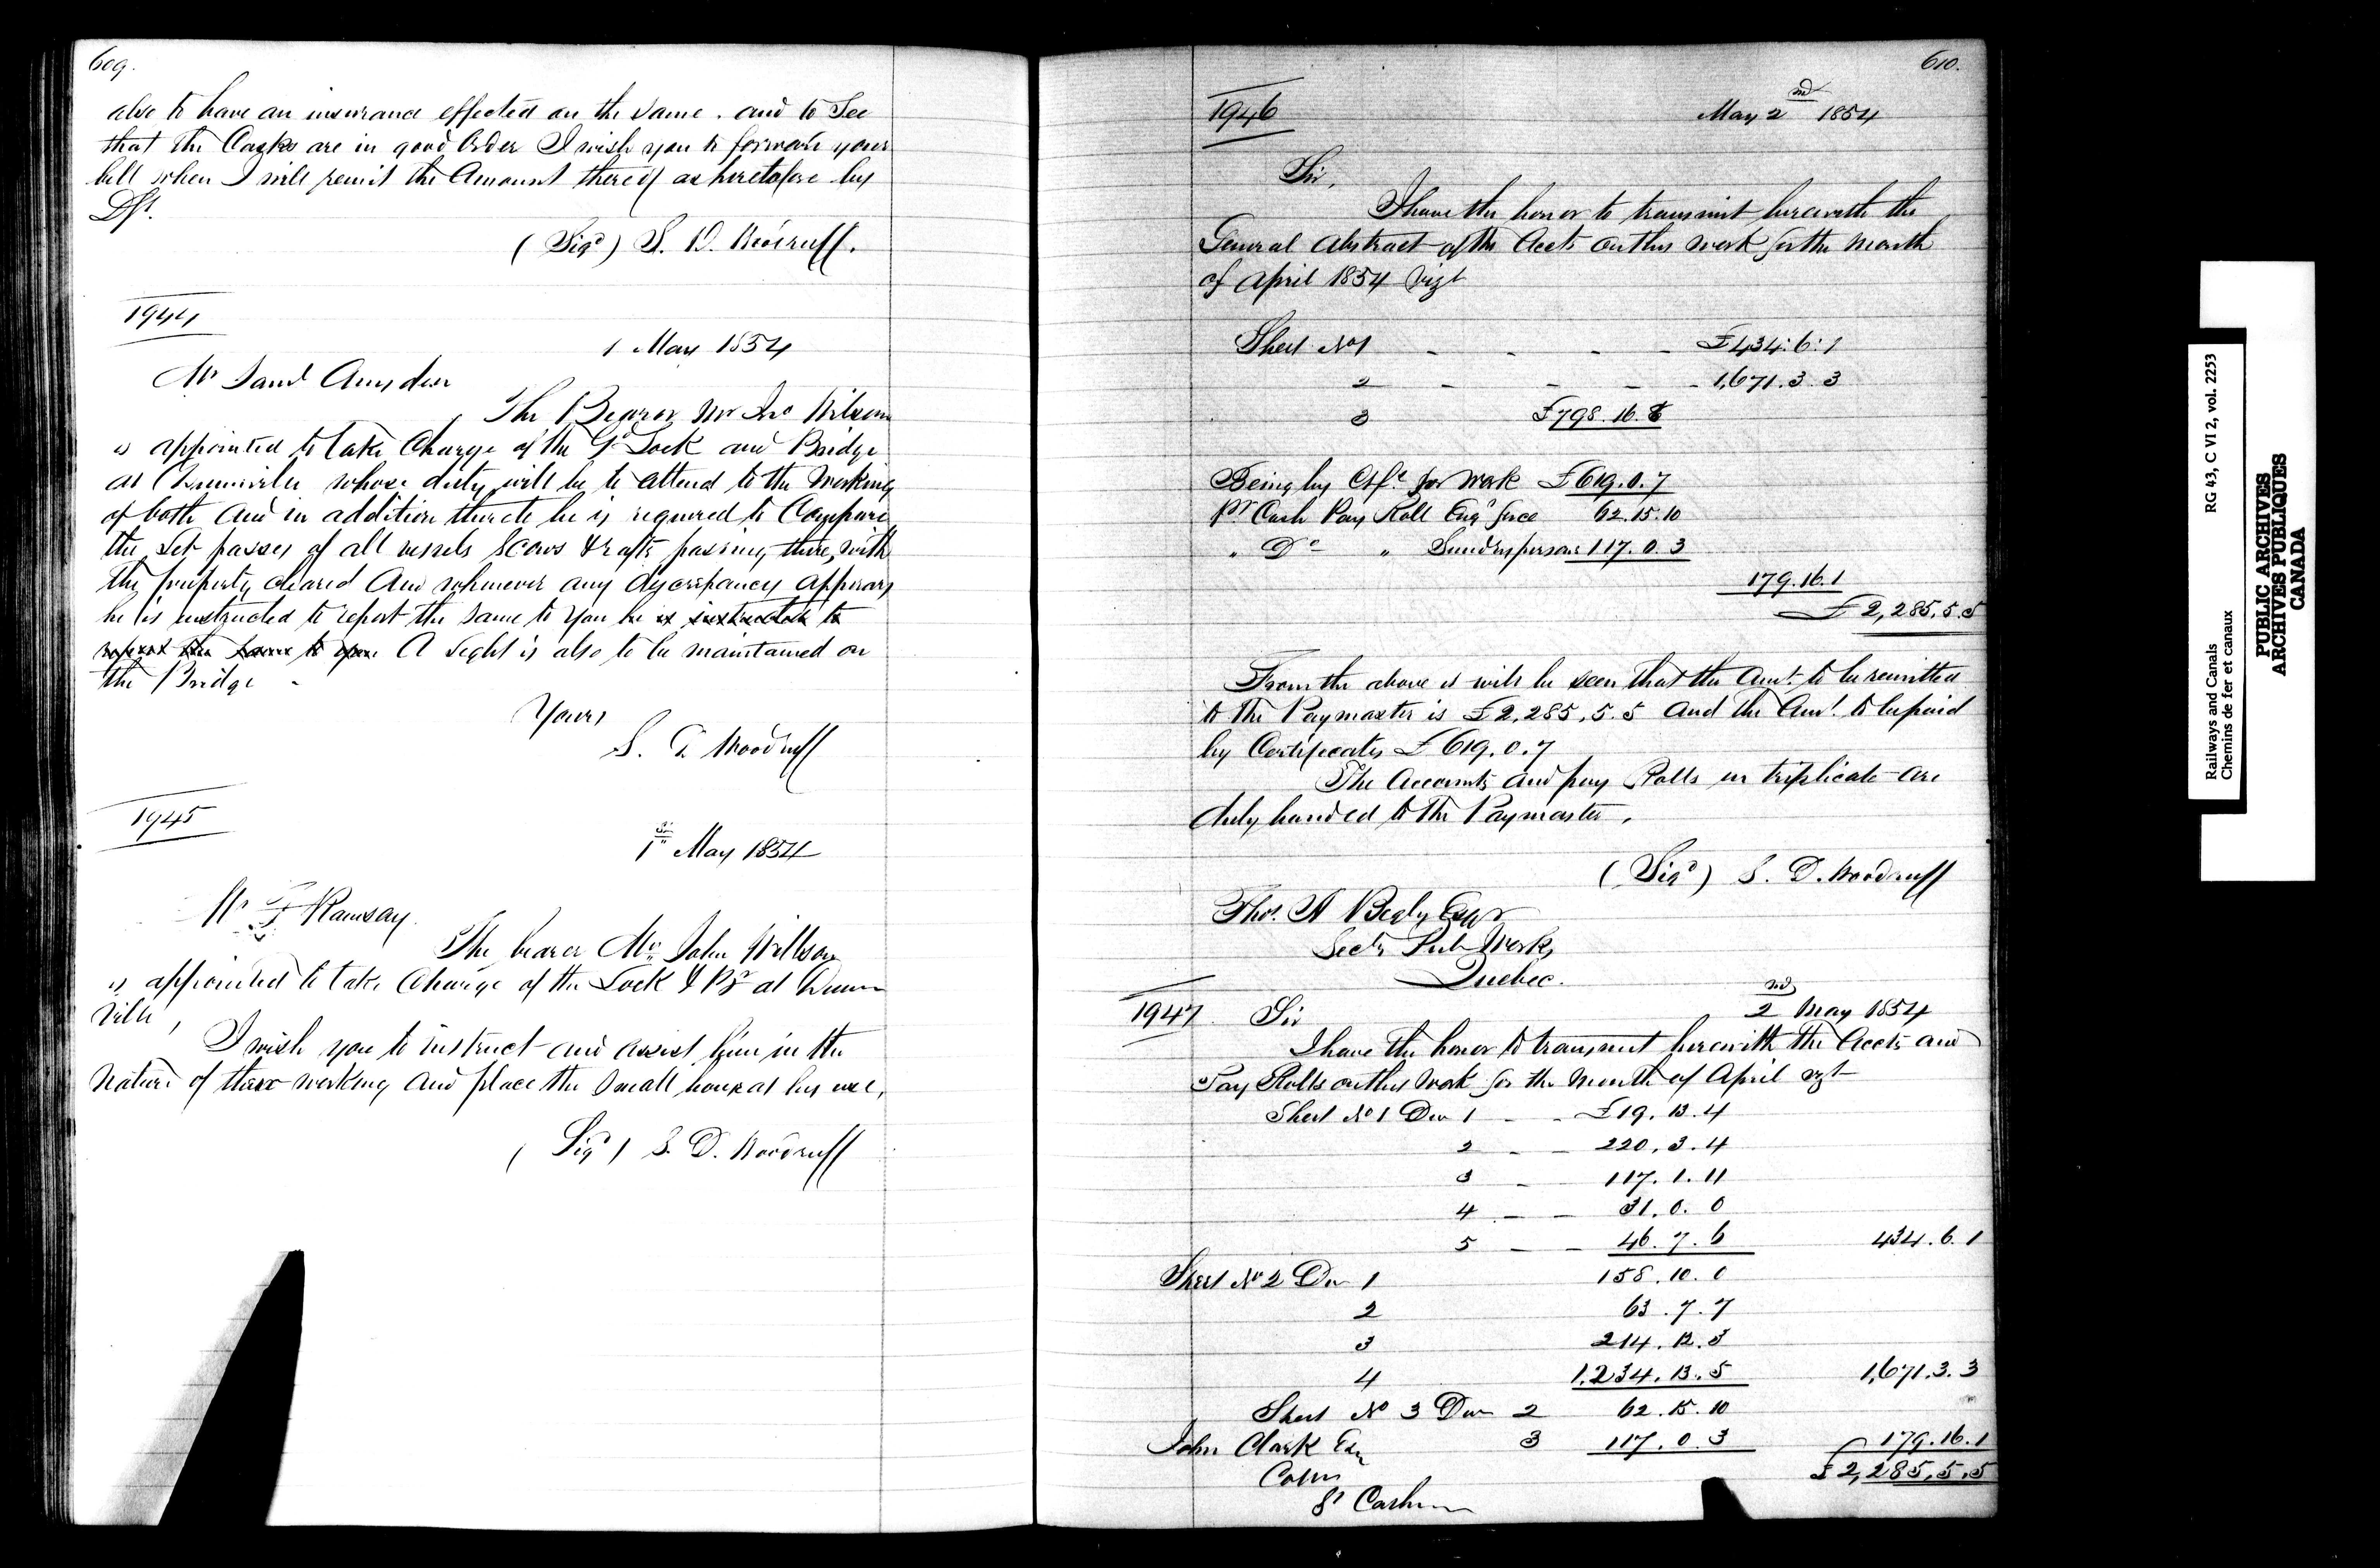 609.
also to have an insurance effected on the same. and to See
that the Casks are in good Order I wish you to forward your
bill when I will remit the Amount thereof as heretofore by
Dft.
(Sigd) S. D. Woodruff.
1944
1 May 1854
Mr Saml Amsden
The Bearer Mr Jno Wilson
is appointed to take Charge of the Gd Lock and Bridge
at Dunnville whose duty will be to attend to the Working
of both and in addition thereto he is required to Compare
the Let passes of all vessels Scows & rafts passing there, with
the property cleared and whenever any discrepancy appears
he is instructed to report the same to you he is instructed to
report the same to you. A Light is also to be maintained on
the Bridge -
Yours
S. D. Woodruff
1945
1st May 1854
Mr F Ramsay.
The bearer Mr. John Willson
is appointed to take Charge of the Lock & Bg at Dunn
ville,
I wish you to instruct and assist him in the
Nature of their working and place the small house at his use,
(Sigd) S. D. Woodruff
610.
1946
May 2nd 1854
Sir,
I have the honor to transmit herewith the
General Abstract of the Accts on this work for the Month
of April 1854 Vizt
Sheet No 1 - - - - £434:6:1
2 - - - - 1,671.3.3
3 £798.16.8
Being by Ctfe for Work £619.0.7
Pr Cash Pay Roll Engr force 62.15.10
" Do " Sundry persons 117.0.3
179.16.1
£2,285.5.5
From the above it will be seen that the Amt. to be remitted
to the Paymaster is £2,285.5.5 and the Amt. to be paid
by Certificates £619.0.7
The Accounts and pay Rolls in triplicate are
duly handed to the Paymaster.
(Sigd) S. D. Woodruff
Thos. A Begly Esqr
Secty Pub Works
Quebec.
1947 Sir 2nd May 1854
I have the honor to transmit herewith the Accts and
Pay Rolls on this Work for the Month of April vizt
Sheet No 1 Div 1 - - £19.13.4
2 - - 220.3.4
3 - 117.1.11
4 - - 31.0.0
5 - - 46.7.6 434.6.1
Sheet No 2 Div 1 158.10.0
2 63.7.7
3 214.12.3
4 1,234.13.5 1,671.3.3
Sheet No 3 Div 2 62.15.10
John Clark Esq 3 117.0.3 179.16.1
£2,285.5.5
St Catharines
RG 43, C VI 2, vol. 2253
Railways and Canals
Chemins de fer et canaux
PUBLIC ARCHIVES
ARCHIVES PUBLIQUES
CANADA